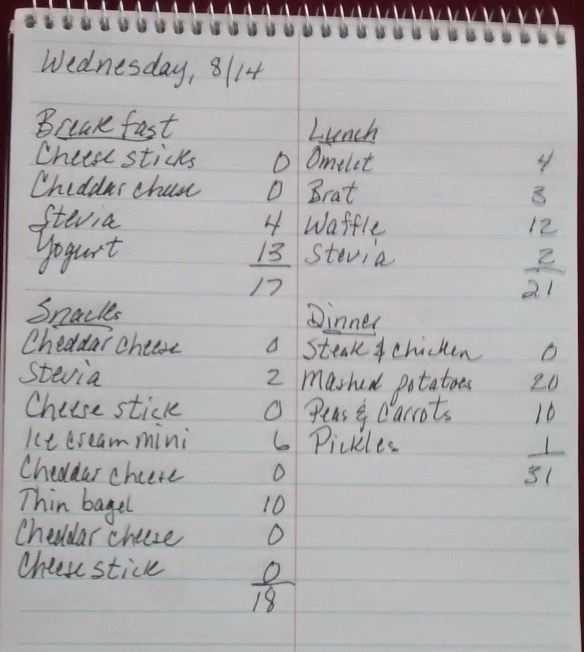 Wednesday, 8/14
Breakfast
Cheese sticks 0
Cheddar cheese 0
Stevia 4
Yogurt 13
17
Snacks
Cheddar cheese 0
Stevia 2
Cheese stick 0
Ice cream mini 6
Cheddar cheese 0
Thin bagel 10
Cheddar cheese 0
Cheese stick 0
18
Lunch
Omelet 4
Brat 3
Waffle 12
Stevia 2
21
Dinner
Steak & chicken 0
Mashed potatoes 20
Peas & Carrots 10
Pickles 1
31